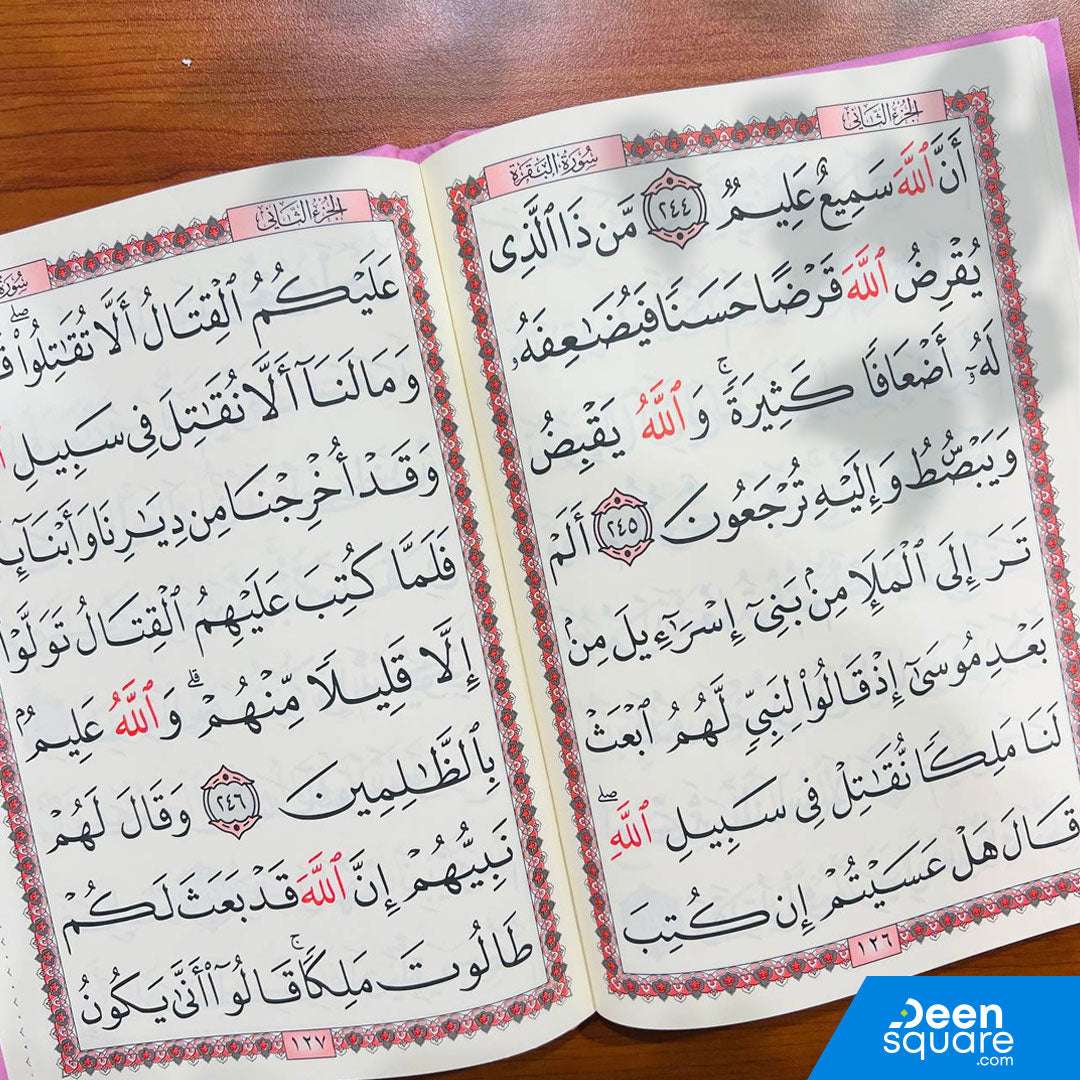 سُورَةُ البَقَرَةِ
الجُزْءُ الثَّانِي
أَنَّ ٱللَّهَ سَمِيعٌ عَلِيمٌ ٢٤٤ مَّن ذَا ٱلَّذِى
يُقْرِضُ ٱللَّهَ قَرْضًا حَسَنًا فَيُضَٰعِفَهُۥ
لَهُۥٓ أَضْعَافًا كَثِيرَةً ۚ وَٱللَّهُ يَقْبِضُ
وَيَبْصُۜطُ وَإِلَيْهِ تُرْجَعُونَ ٢٤٥ أَلَمْ
تَرَ إِلَى ٱلْمَلَإِ مِنۢ بَنِىٓ إِسْرَٰٓءِيلَ مِنۢ
بَعْدِ مُوسَىٰٓ إِذْ قَالُوا۟ لِنَبِىٍّ لَّهُمُ ٱبْعَثْ
لَنَا مَلِكًا نُّقَٰتِلْ فِى سَبِيلِ ٱللَّهِ ۖ
قَالَ هَلْ عَسَيْتُمْ إِن كُتِبَ
١٢٦
الجُزْءُ الثَّانِي
سُورَةُ
عَلَيْكُمُ ٱلْقِتَالُ أَلَّا تُقَٰتِلُوا۟ ۖ
وَمَا لَنَآ أَلَّا نُقَٰتِلَ فِى سَبِيلِ
وَقَدْ أُخْرِجْنَا مِن دِيَٰرِنَا وَأَبْنَآئِ
فَلَمَّا كُتِبَ عَلَيْهِمُ ٱلْقِتَالُ تَوَلَّوْا۟
إِلَّا قَلِيلًا مِّنْهُمْ ۗ وَٱللَّهُ عَلِيمٌۢ
بِٱلظَّٰلِمِينَ ٢٤٦ وَقَالَ لَهُمْ
نَبِيُّهُمْ إِنَّ ٱللَّهَ قَدْ بَعَثَ لَكُمْ
طَالُوتَ مَلِكًا ۚ قَالُوٓا۟ أَنَّىٰ يَكُونُ
١٢٧
Deen
square
.com